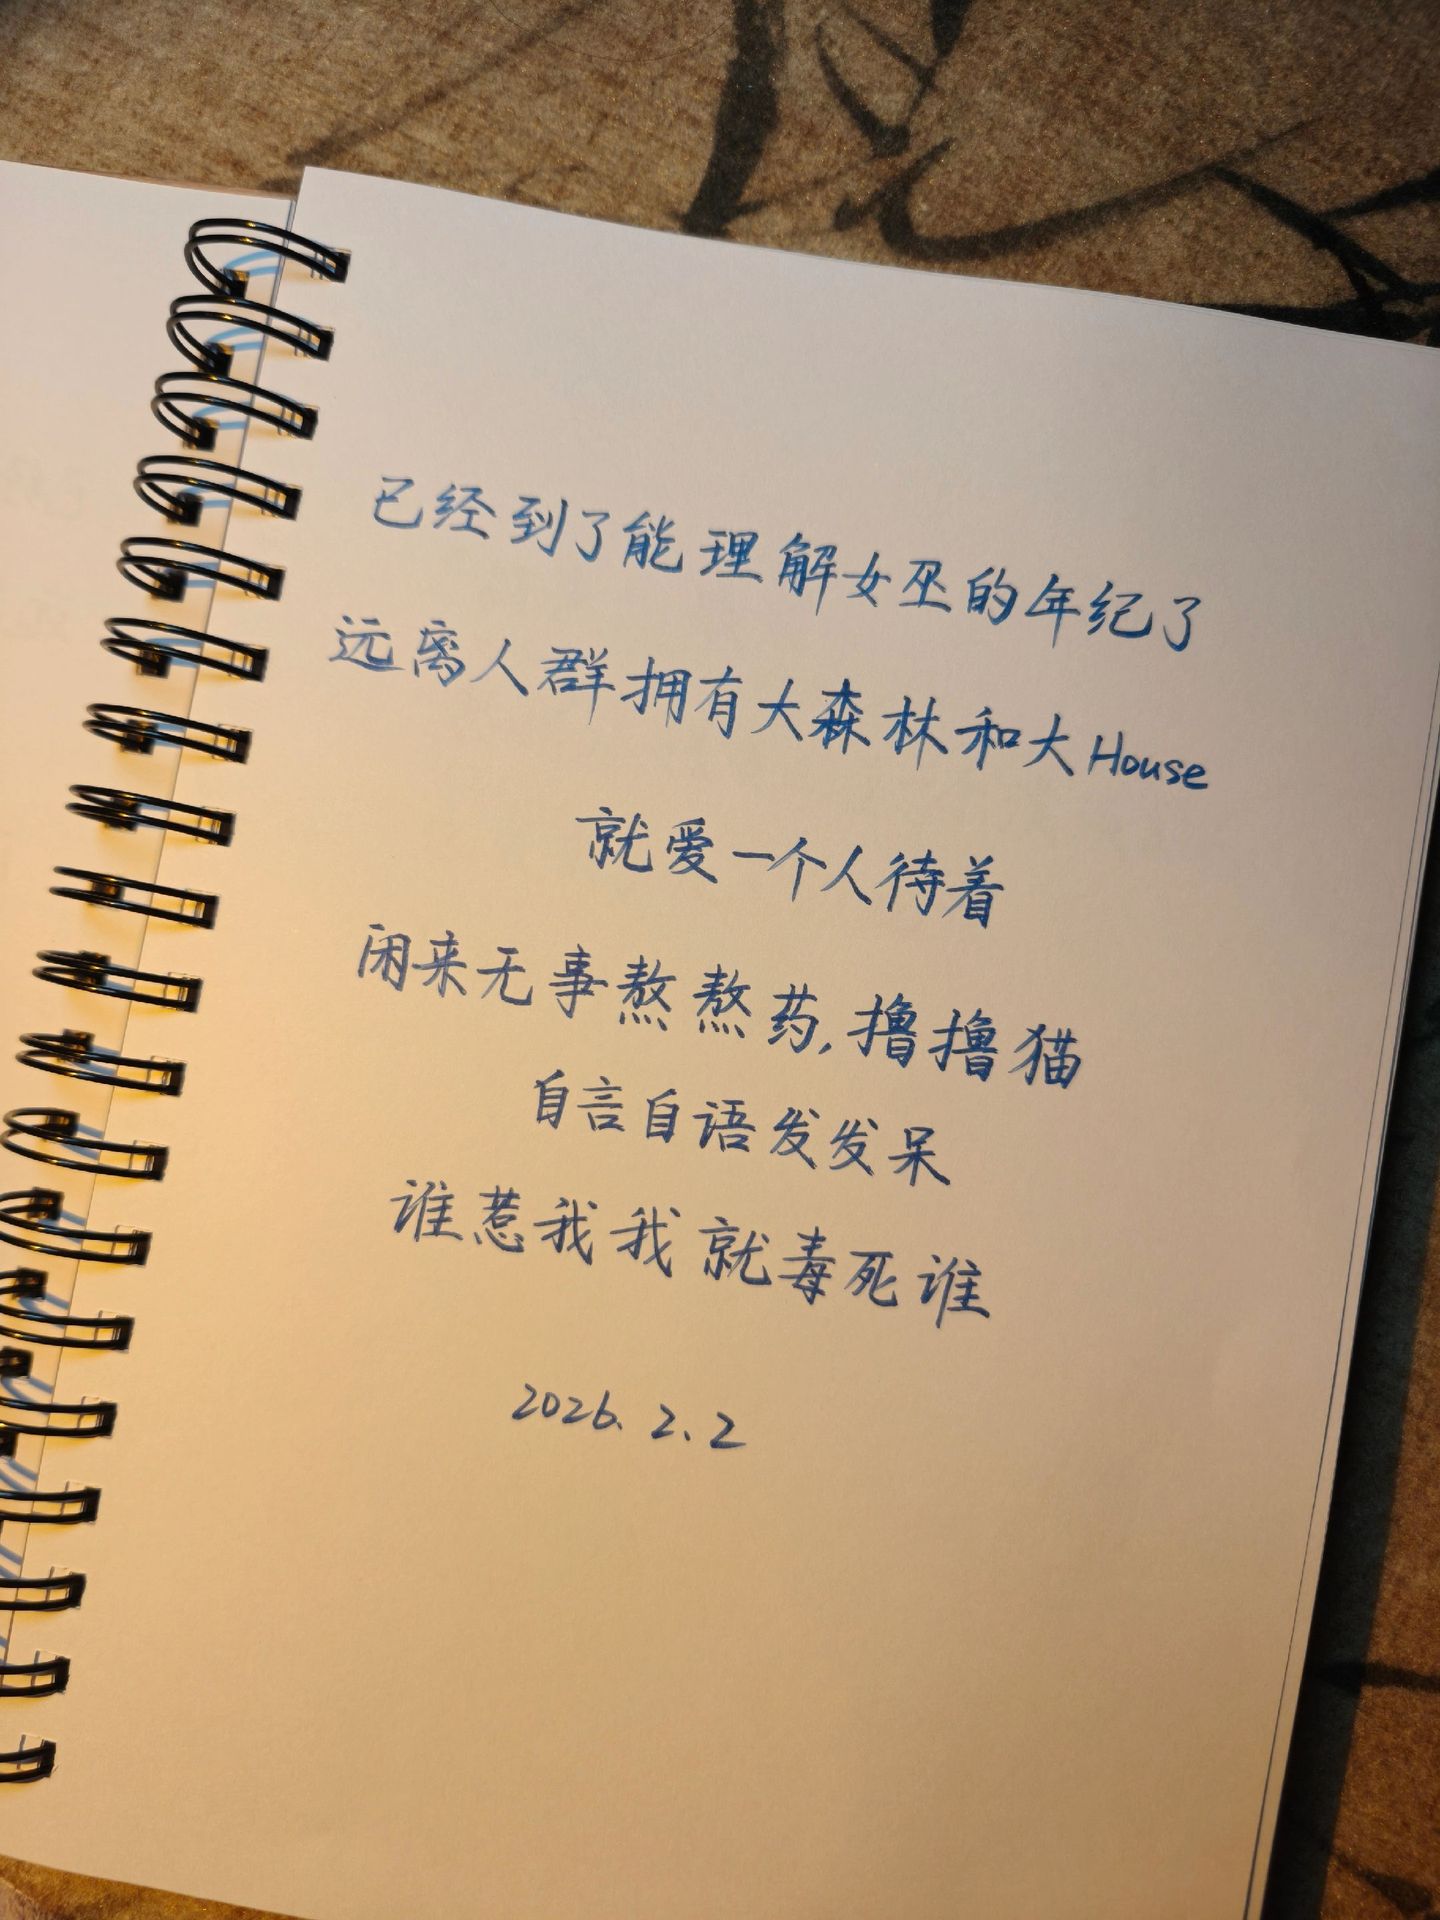 已经到了能理解女巫的年纪了
远离人群拥有大森林和大House
就爱一个人待着
闲来无事熬熬药,撸撸猫
自言自语发发呆
谁惹我我就毒死谁
2026.2.2